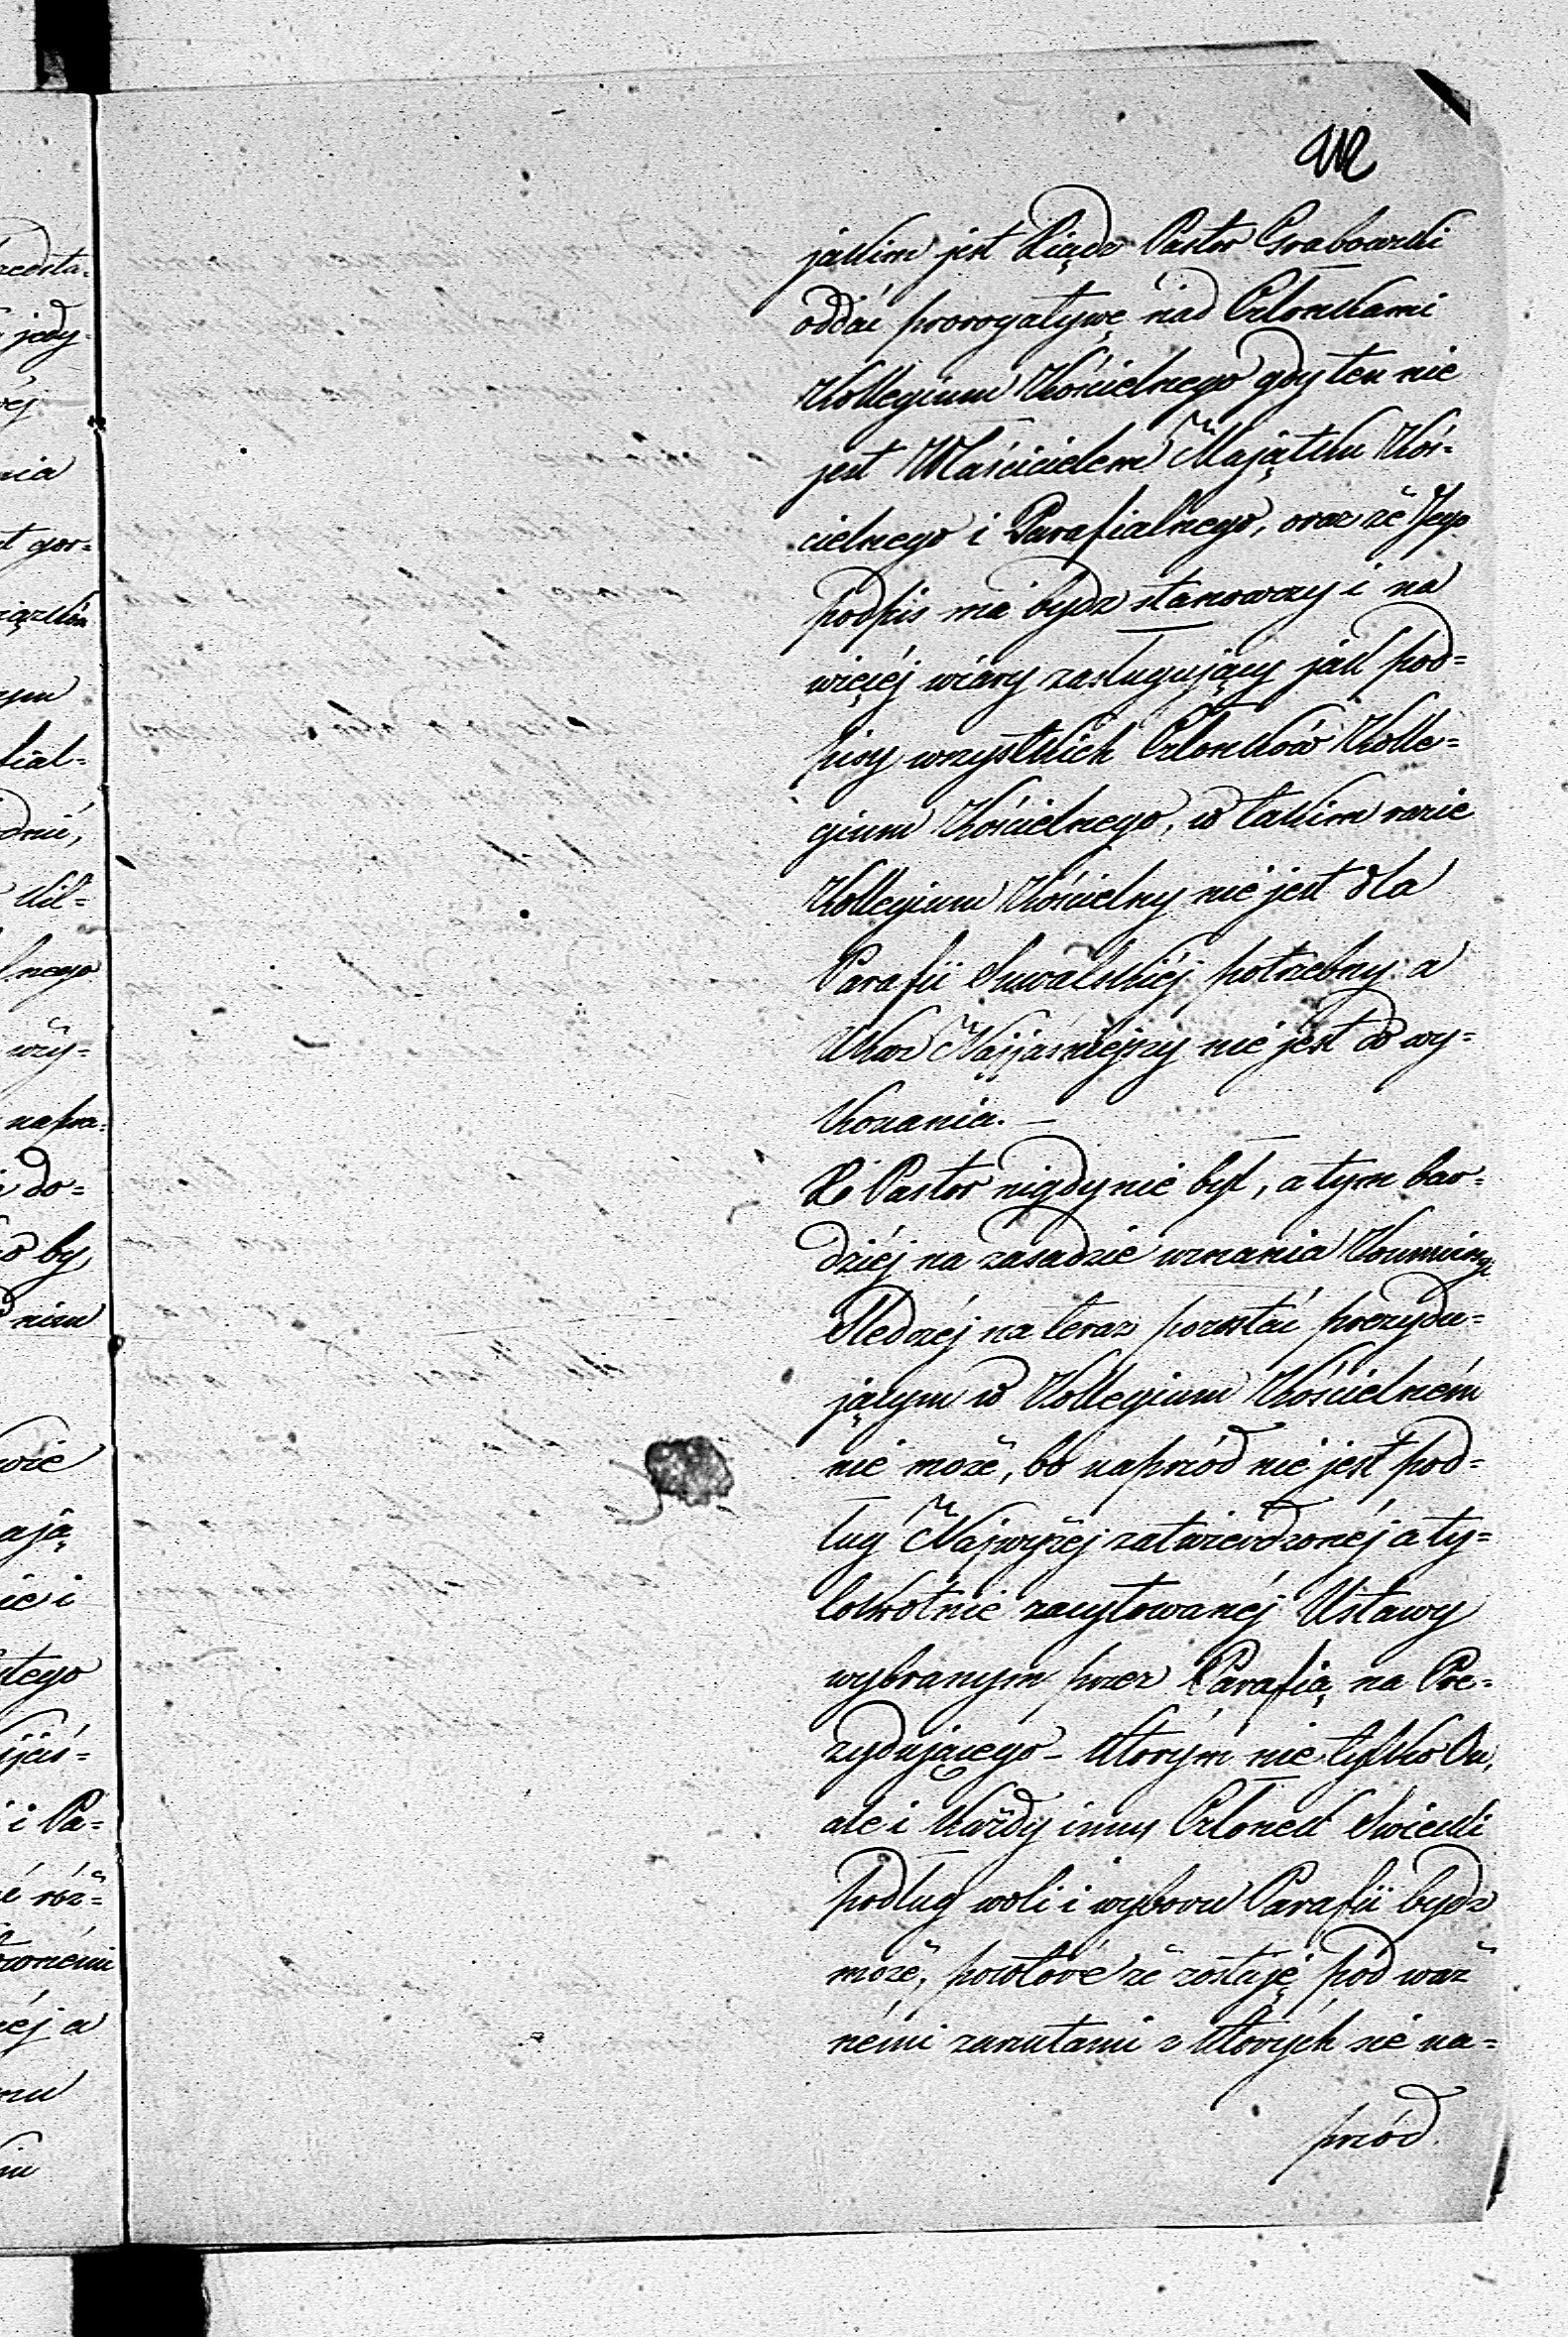 jakim jest Xiądz Pastor Grabowski
oddać prerogatywę nad Członkami
Kollegium Kościelnego gdy ten nie
jest Właścicielem Majątku Koś-
cielnego i Parafialnego, oraz że Jego
podpis ma bydz stanowczy i na
więcéj wiary zasługujący jak pod=
pisy wszystkich Członków Kolle=
gium Kościelnego, w takim razie
Kollegium Kościelny nie jest dla
Parafii Suwalskiéj potrzebny a
Ukaz Najjaśniejszy nie jest do wy=
konania. —
Że Pastor nigdy nie był, a tym bar=
dziéj na zasadzie uznania Kommissyi
Śledczéj na teraz pozostać prezydu=
jącym w Kollegium Kościelném
nie może, bo naprzód nie jest pod=
ług Najwyżej zatwierdzonéj a ty=
lokrotnie zacytowanéj Ustawy
wybranym przez Parafią na Pre=
zydującego – którym nie tylko On,
ale i każdy inny Członek Świecki
podług woli i wyboru Parafii bydz
może, powtóre że zostaje pod waż
némi zarzutami z których sie na=
przód.